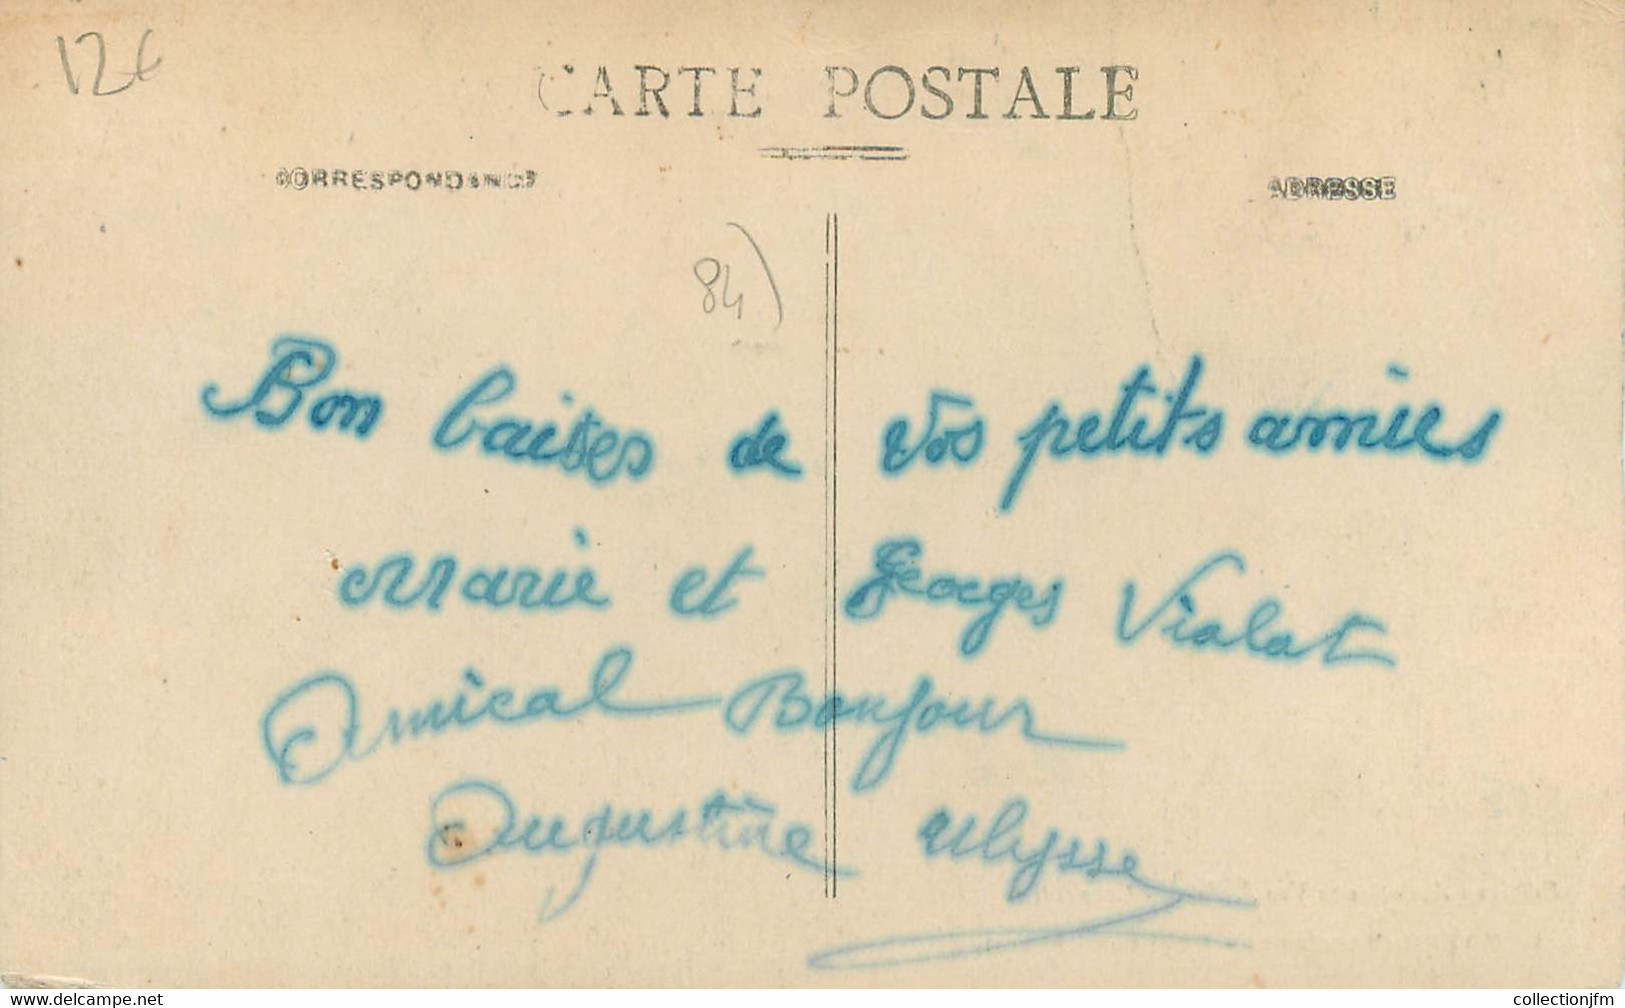 12€
CARTE POSTALE
CORRESPONDANCE
ADRESSE
84)
Bon baises de vos petits amies
Marie et Georges Vialat
Amical Bonjour
Augustine Ulysse
www.delcampe.net
collectionjfm